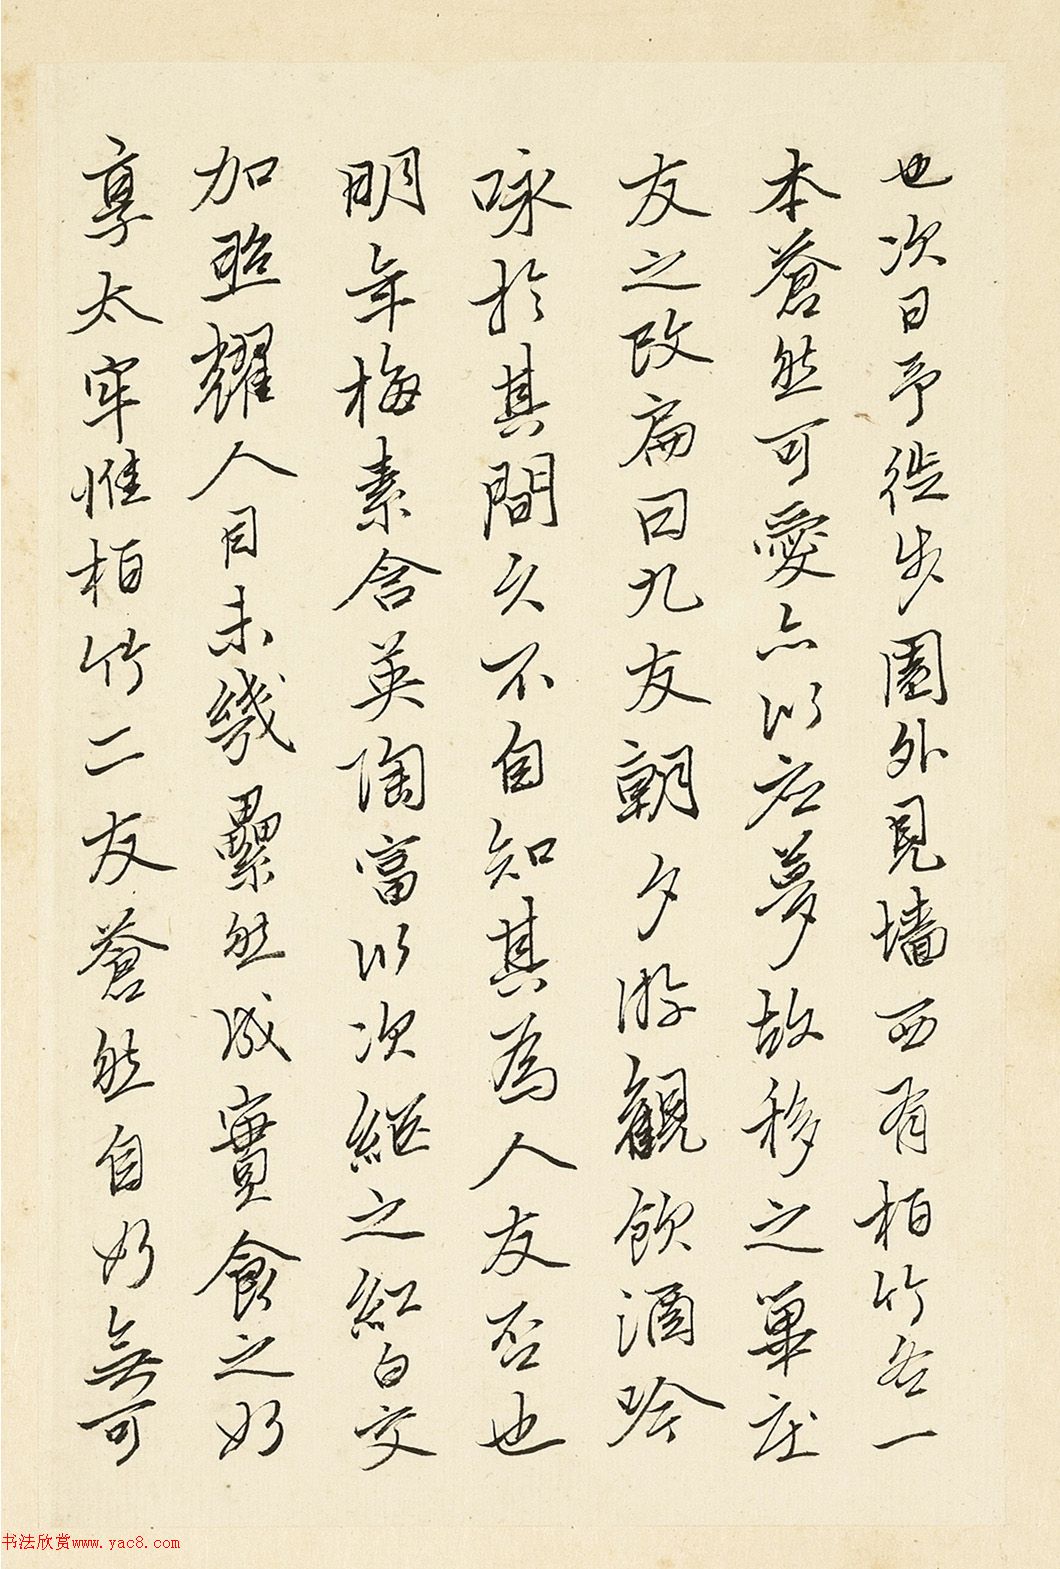 也次日予徙步園外見墻西有柏竹各一
本蒼然可愛亦以応夢故移之單庄
友之改扁曰九友朝夕游觀飲酒吟
咏於其間久不自知其為人友否也
明年梅素含英陶富以次繼之紅白交
加照耀人目未幾纍然成實食之如
享太牢惟柏竹二友蒼然自如無可
书法欣赏www.yac8.com